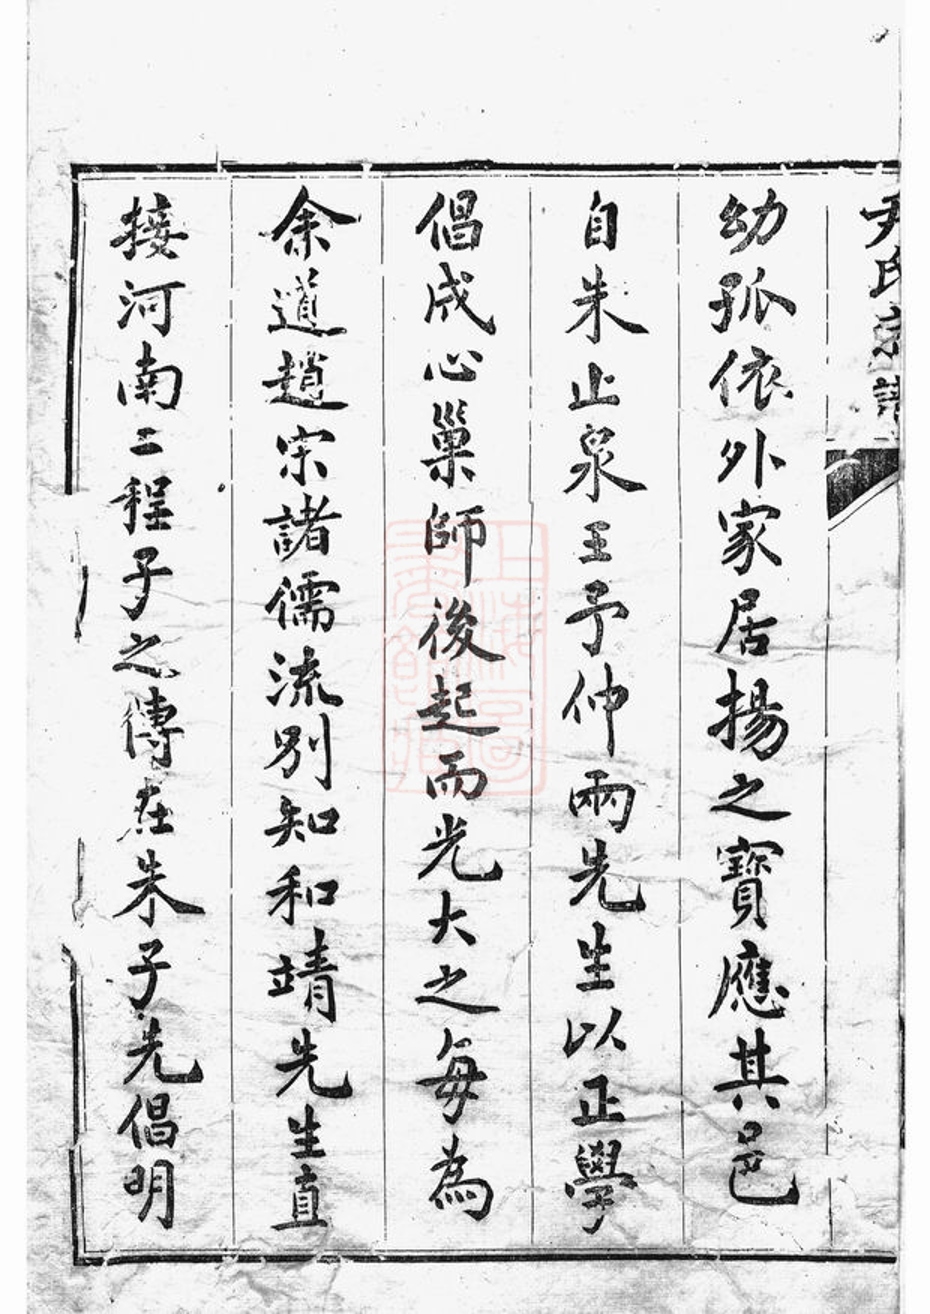 尹氏宗譜
幼孤依外家居揚之寶應其邑
自朱止泉王予仲兩先生以正學
倡成心巢師後起而光大之每為
余道趙宗諸儒流別知和靖先生直
接河南二程子之傳在朱子先倡明